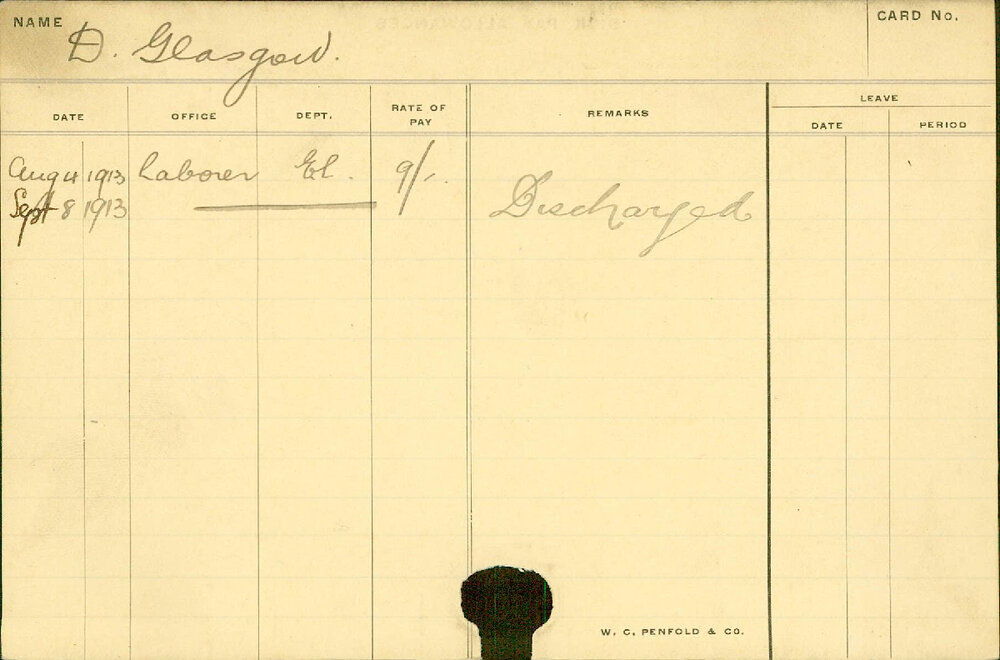 NAME D. Glasgow. CARD No.
LEAVE
DATE OFFICE DEPT. RATE OF PAY REMARKS DATE PERIOD
Aug 4 1913 Laborer El. 9/-.
Sept 8 1913 Discharged
W. C. PENFOLD & CO.